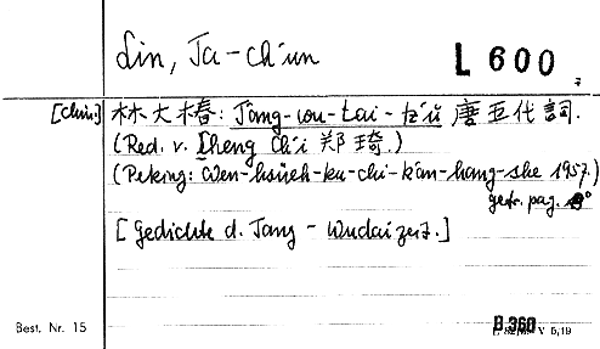 Lin, Ta-ch'un
L 600
[chin.] 林大椿: T'ang-wu-tai-tz'ŭ 唐五代詞.
(Red. v. Cheng Ch'i 郑琦.)
(Peking: Wen-hsüeh-ku-chi-k'an-hang-she 1957.)
getr. pag. 8°
[Gedichte d. Tang-Wudaizeit.]
Best. Nr. 15
B 360
V 5,19